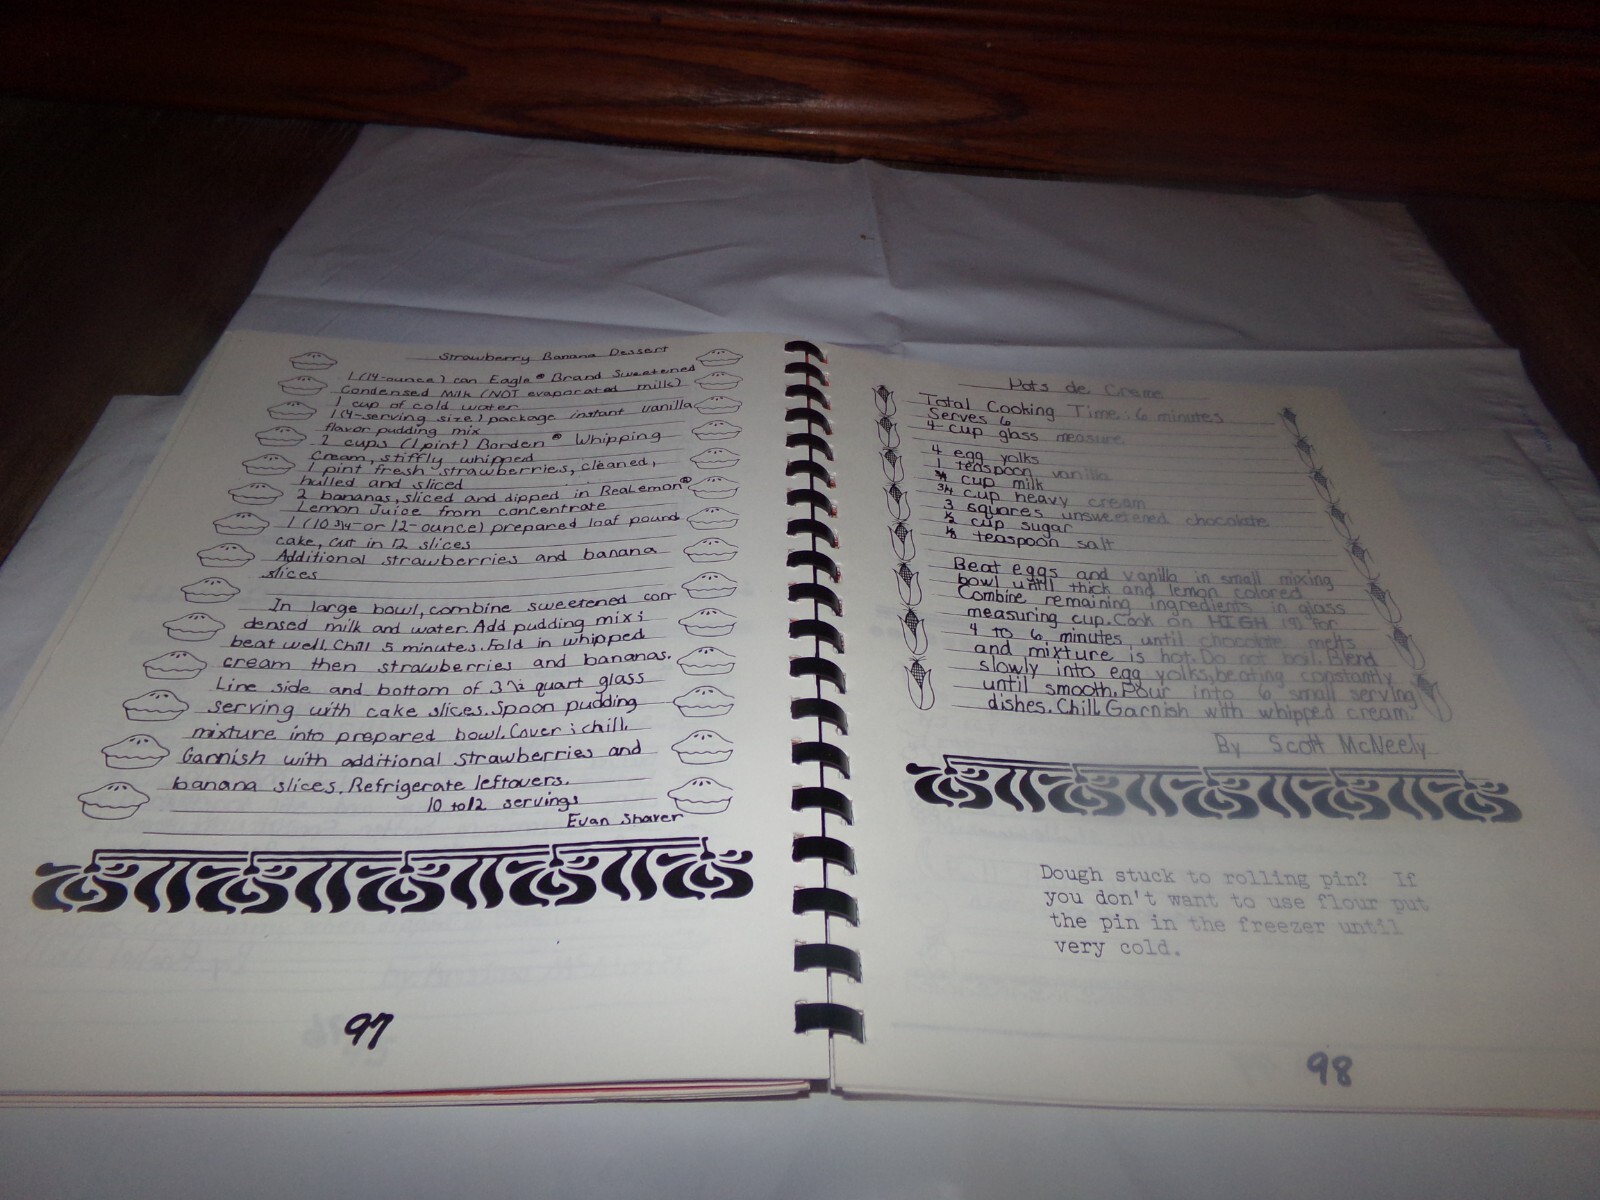 Strawberry Banana Dessert
1 (14-ounce) can Eagle® Brand Sweetened
Condensed Milk (NOT evaporated milk)
1 cup of cold water
1 (4-serving size) package instant vanilla
flavor pudding mix
2 cups (1 pint) Borden® Whipping
Cream, stiffly whipped
1 pint fresh strawberries, cleaned,
hulled and sliced
2 bananas, sliced and dipped in ReaLemon®
Lemon Juice from concentrate
1 (10 3/4-or 12-ounce) prepared loaf pound
cake, cut in 12 slices
Additional strawberries and banana
slices
In large bowl, combine sweetened con-
densed milk and water. Add pudding mix;
beat well. Chill 5 minutes. Fold in whipped
cream then strawberries and bananas.
Line side and bottom of 3 1/2 quart glass
serving with cake slices. Spoon pudding
mixture into prepared bowl. Cover; chill.
Garnish with additional strawberries and
banana slices. Refrigerate leftovers.
10 to 12 servings
Evan Shaver
97
Pots de Creme
Total Cooking Time: 6 minutes
Serves 6
4-cup glass measure
4 egg yolks
1 teaspoon vanilla
3/4 cup milk
3/4 cup heavy cream
3 squares unsweetened chocolate
1/2 cup sugar
1/8 teaspoon salt
Beat eggs and vanilla in small mixing
bowl until thick and lemon colored
Combine remaining ingredients in glass
measuring cup. Cook on HIGH for
4 to 6 minutes until chocolate melts
and mixture is hot. Do not boil. Blend
slowly into egg yolks, beating constantly
until smooth. Pour into 6 small serving
dishes. Chill. Garnish with whipped cream.
By Scott McNeely
Dough stuck to rolling pin? If
you don't want to use flour put
the pin in the freezer until
very cold.
98